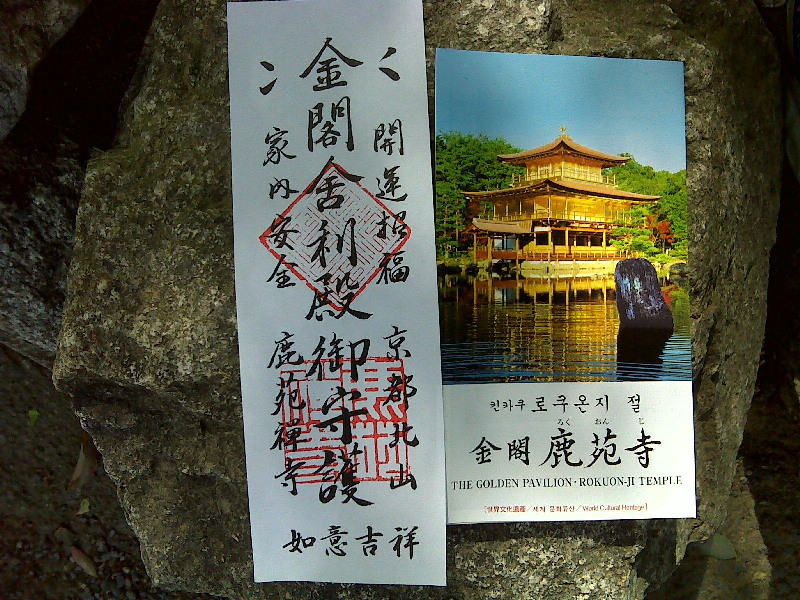 開運招福 京都北山
金閣舍利殿御守護
家内安全 鹿苑禅寺
如意吉祥
킨카쿠 로쿠온지 절
ろく おん じ
金閣 鹿苑寺
THE GOLDEN PAVILION・ROKUON-JI TEMPLE
[世界文化遺産／세계 문화유산／World Cultural Heritage]